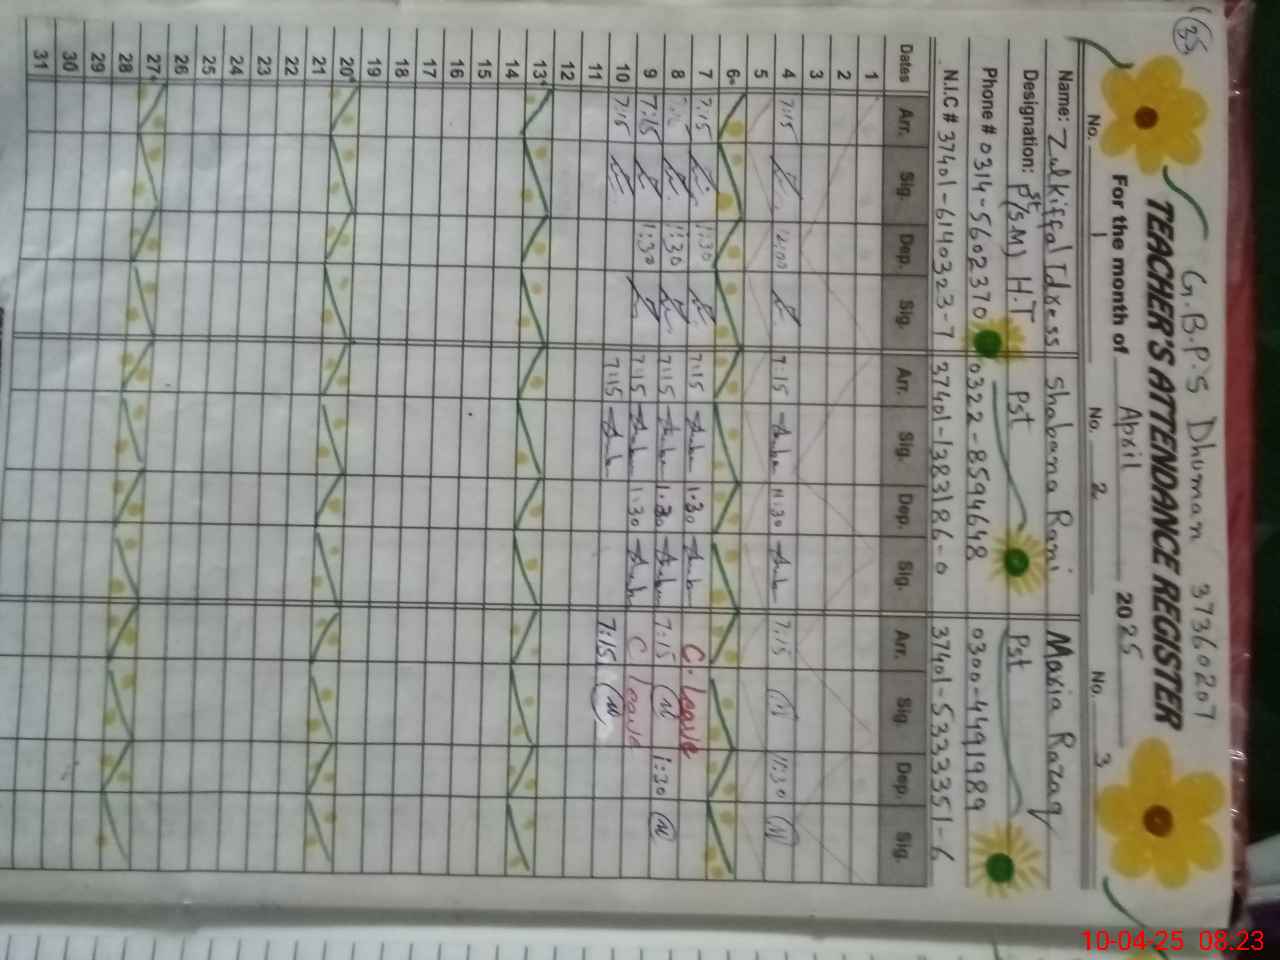 35
G.B.P.S Dhuman 37360207
TEACHER'S ATTENDANCE REGISTER
For the month of April 2025
No. 1 No. 2 No. 3
Name: Zulkiffal Idress Shabana Rani Maria Razaq
Designation: Pst Pst
Phone # 0314-5602370 0322-8594648 0300-4491989
N.I.C # 37401-6140323-7 37401-1383186-0 37401-5333351-6
Dates Arr. Sig. Dep. Sig. Arr. Sig. Dep. Sig. Arr. Sig. Dep. Sig.
1
2
3
4 7:15 12:00 7:15 11:30 7:15 11:30
5
6
7 7:15 1:30 7:15 1:30 C. Leave
8 1:30 7:15 1:30 7:15 1:30
9 7:15 1:30 7:15 1:30 C leave
10 7:15 7:15 7:15
11
12
13
14
15
16
17
18
19
20
21
22
23
24
25
26
27
28
29
30
31
10-04-25 08:23